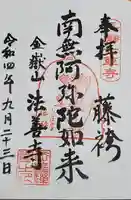 奉拝 藤袴
南無阿弥陀如来
金嶽山 法善寺
令和四年九月二十三日